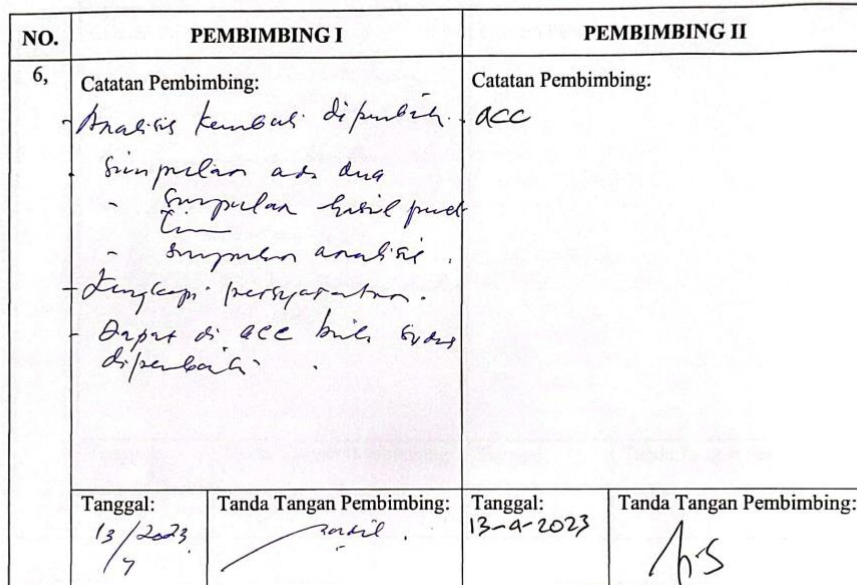 NO.
PEMBIMBING I
PEMBIMBING II
6,
Catatan Pembimbing:
- Analisis kembali
- Simpulan ada dua
- Simpulan hasil
- Simpulan analisis.
- Lengkapi persyaratan.
- Dapat di acc bila sudah
diperbaiki.
Catatan Pembimbing:
- acc
Tanggal:
13/2023
Tanda Tangan Pembimbing:
Tanggal:
13-9-2023
Tanda Tangan Pembimbing: